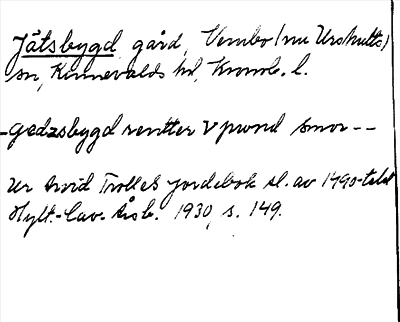 Jätsbygd, gård, Vembo (nu Urshults)
sn, Kinnevalds hd, Kronob. l.
gedzsbygd renther V pwnd smør--
Ur Arvid Trolles jordebok sl. av 1490-talet
Hylt.-Cav. Årsb. 1930, s. 149.